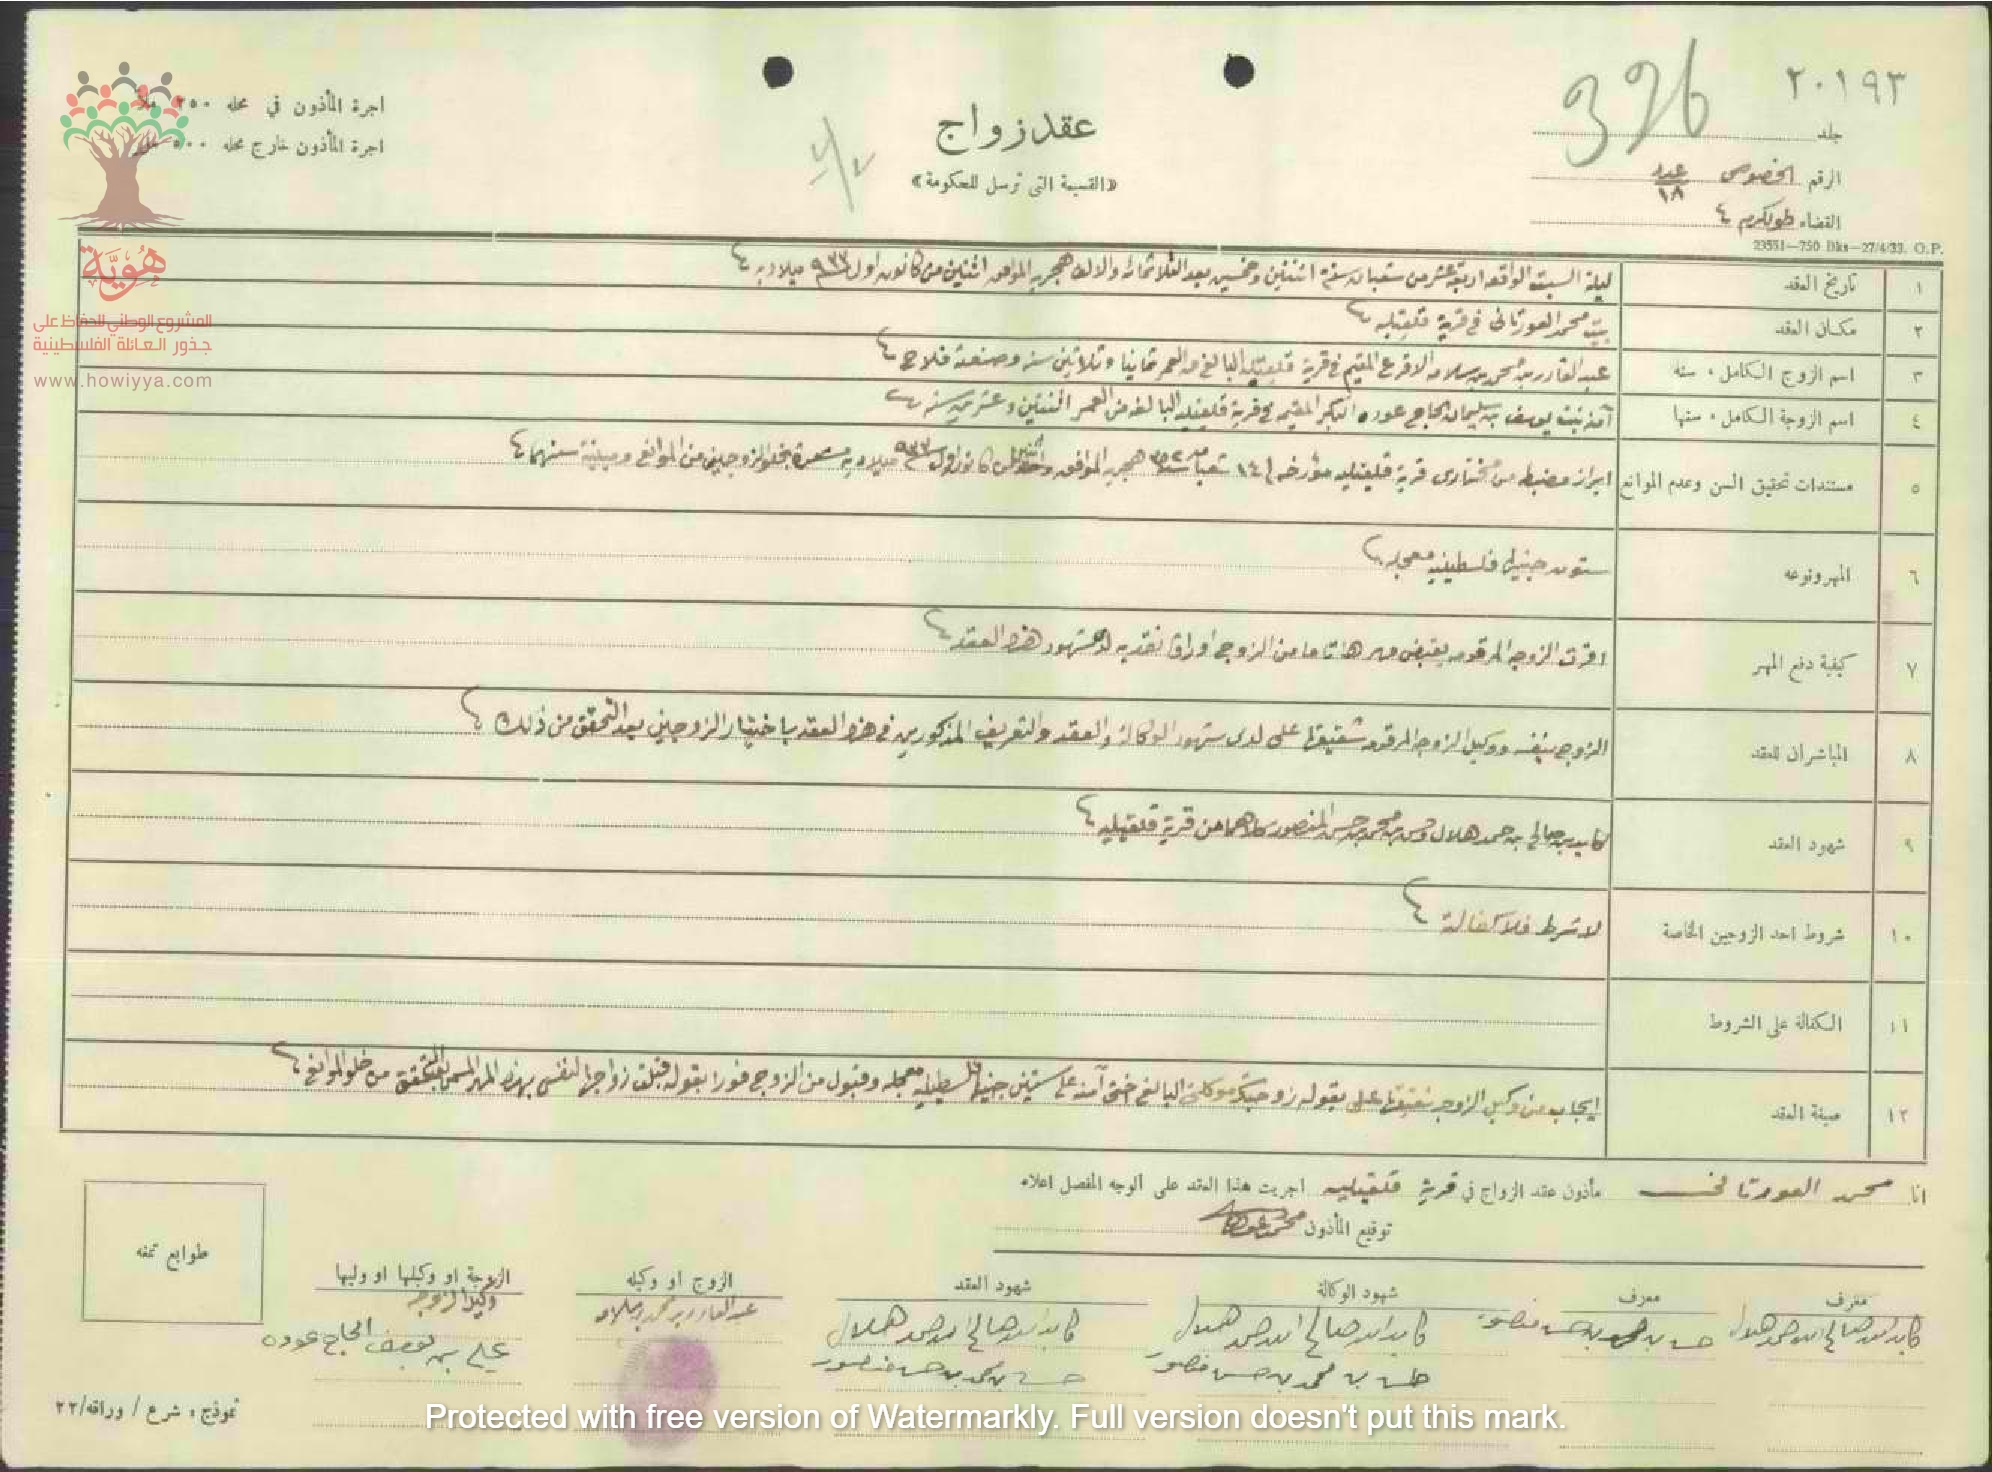 ٢٠١٩٣
396
جلد
الرقم الخصوصي عدد ١٨
القضاء طولكرم
23551—750 Bks—27/4/33. G.P.
عقد زواج
«القسيمة التي ترسل للحكومة»
اجرة المأذون في محله ٢٥٠ ملاً
اجرة المأذون خارج محله ٥٠٠ مل
هُويَّة
المشروع الوطني للحفاظ على
جذور العائلة الفلسطينية
www.howiyya.com
١ تاريخ العقد ليلة السبت الواقعه اربعة عشر من شعبان سنة اثنتين وخمسين بعد الثلاثمائه والالف هجريه الموافق اثنين من كانون اول ٩٣٣ ميلاديه
٢ مكان العقد بيت محمد العورتاني في قرية قلقيليه
٣ اسم الزوج الكامل . سنه عبد القادر بن محمد بن سلامه الاقرع المقيم في قرية قلقيليه البالغ من العمر ثمانيا وثلاثين سنه وصنعته فلاح
٤ اسم الزوجة الكامل . سنها آمنه بنت يوسف بن سليمان الحاج عوده البكر المقيمه في قرية قلقيليه البالغه من العمر اثنتين وعشرين سنه
٥ مستندات تحقيق السن وعدم الموانع ابراز مضبطه من مختارى قرية قلقيليه مؤرخه ١٤ شعبان سنة ٣٥٢ هجريه الموافق كانون اول ٩٣٣ ميلاديه بخلو الزوجين من الموانع ومبينة سنهما
٦ المهر ونوعه ستون جنيها فلسطينيه معجله
٧ كيفية دفع المهر اقرت الزوجه المرقومه بقبض مهرها تاما من الزوج اوراق نقديه لدى شهود هذا العقد
٨ المباشران للعقد الزوج بنفسه ووكيل الزوجه المرقومه شقيقها على لدى شهود الوكالة والعقد والتعريف المذكورين في هذا العقد باختيار الزوجين بعد التحقق من ذلك
٩ شهود العقد كايد بن صالح بن حمد هلال وحسن بن محمد بن حسن المنصور كلاهما من قرية قلقيليه
١٠ شروط احد الزوجين الخاصة لا شرط فلا كفالة
١١ الكفالة على الشروط
١٢ صيغة العقد ايجاب من وكيل الزوجه شقيقها على بقوله زوجتك موكلتى البالغ اختى آمنه على ستين جنيها فلسطينيه معجله وقبول من الزوج فورا بقوله قبلت زواجها لنفسى بهذا المهر المسمى بعد التحقق من خلو الموانع
انا محمد العورتاني مأذون عقد الزواج في قرية قلقيليه اجريت هذا العقد على الوجه المفصل اعلاه
توقيع المأذون
معرف
كايد ابن صالح ابن حمد هلال
معرف
حسن بن محمد بن حسن منصور
شهود الوكالة
كايد ابن صالح ابن حمد هلال
حسن بن محمد بن حسن منصور
شهود العقد
كايد ابن صالح ابن حمد هلال
حسن بن محمد بن حسن منصور
الزوج او وكيله
عبد القادر بن محمد بن سلامه
الزوجة او وكيلها او وليها
وكيل الزوجه
علي بن يوسف الحاج عوده
طوابع تمغه
نموذج : شرع / وراقه/٢٢
Protected with free version of Watermarkly. Full version doesn't put this mark.